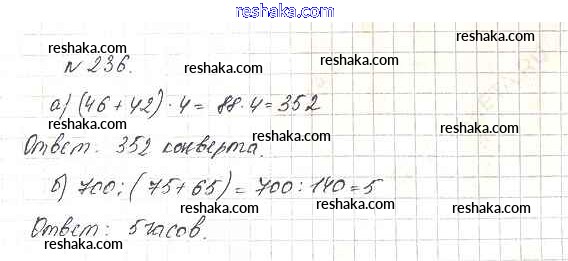 reshaka.com
reshaka.com
reshaka.com
№ 236.
reshaka.com
reshaka.com
а) (46 + 42) · 4 = 88 · 4 = 352
reshaka.com
reshaka.com
Ответ: 352 конверта.
reshaka.com
reshaka.com
reshaka.com
б) 700 : (75 + 65) = 700 : 140 = 5
reshaka.com
reshaka.com
reshaka.com
Ответ: 5 часов.
reshaka.com
reshaka.com
reshaka.com